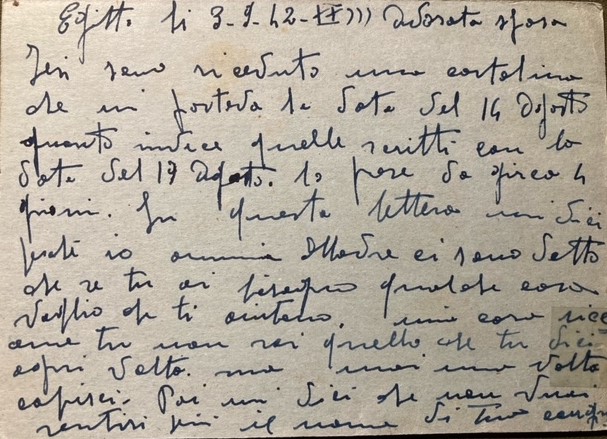 Egitto li 3-9-42-XX))) adorata sposa
Ieri sono riceduto una cartolina
che mi portava la data del 14 Agosto
quanto indice quelle scritti con la
data del 17 Agosto. la pose da circa 4
giorni. In questa lettera mi dici
perche io a mia Madre ci sono detto
che se tu ai bisogno qualche cosa
voglio che ti aiutano. mia cara
ame tu non sai quello che tu dici
ogni volta. ma mai una volta
capisci. Poi mi dici che non vuoi
sentiri piu il nome di tuo